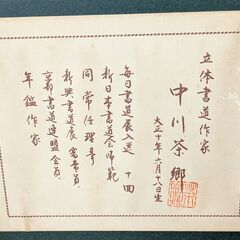 立体書道作家
中川茶郷
大正十年六月十八日生
毎日書道展入選 十四
新日本書道会師範
同 常任理事
新興書道展 審査員
京都書道連盟会員
年鑑作家